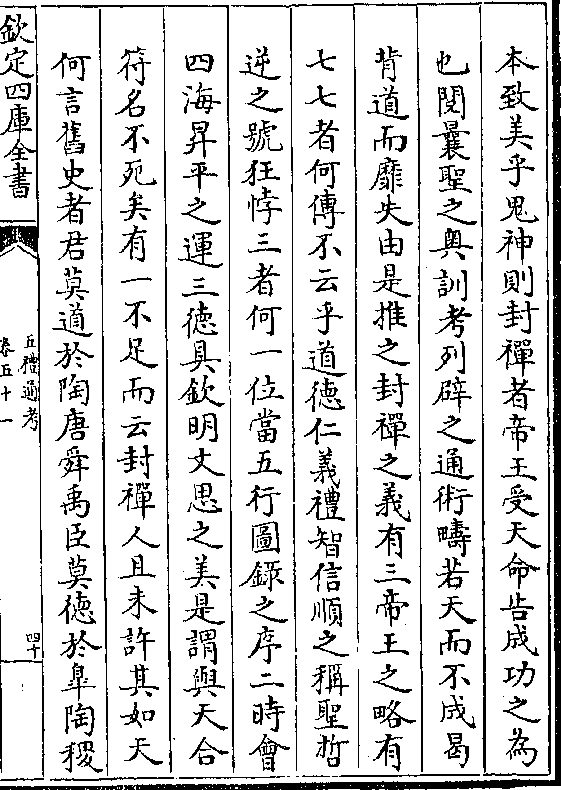 本致美乎鬼神則封禪者帝王受天命告成功之為
也閱曩聖之奥訓考列辟之通術疇若天而不成曷
背道而靡失由是推之封禪之義有三帝王之略有
七七者何傳不云乎道徳仁義禮智信順之稱聖哲
逆之號狂悖三者何一位當五行圖錄之序二時會
四海昇平之運三徳具欽明文思之美是謂與天合
符名不死矣有一不足而云封禪人且未許其如天
何言舊史者君莫道於陶唐舜禹臣莫徳於臯陶稷
欽定四庫全書
五禮通考
卷五十一
四十